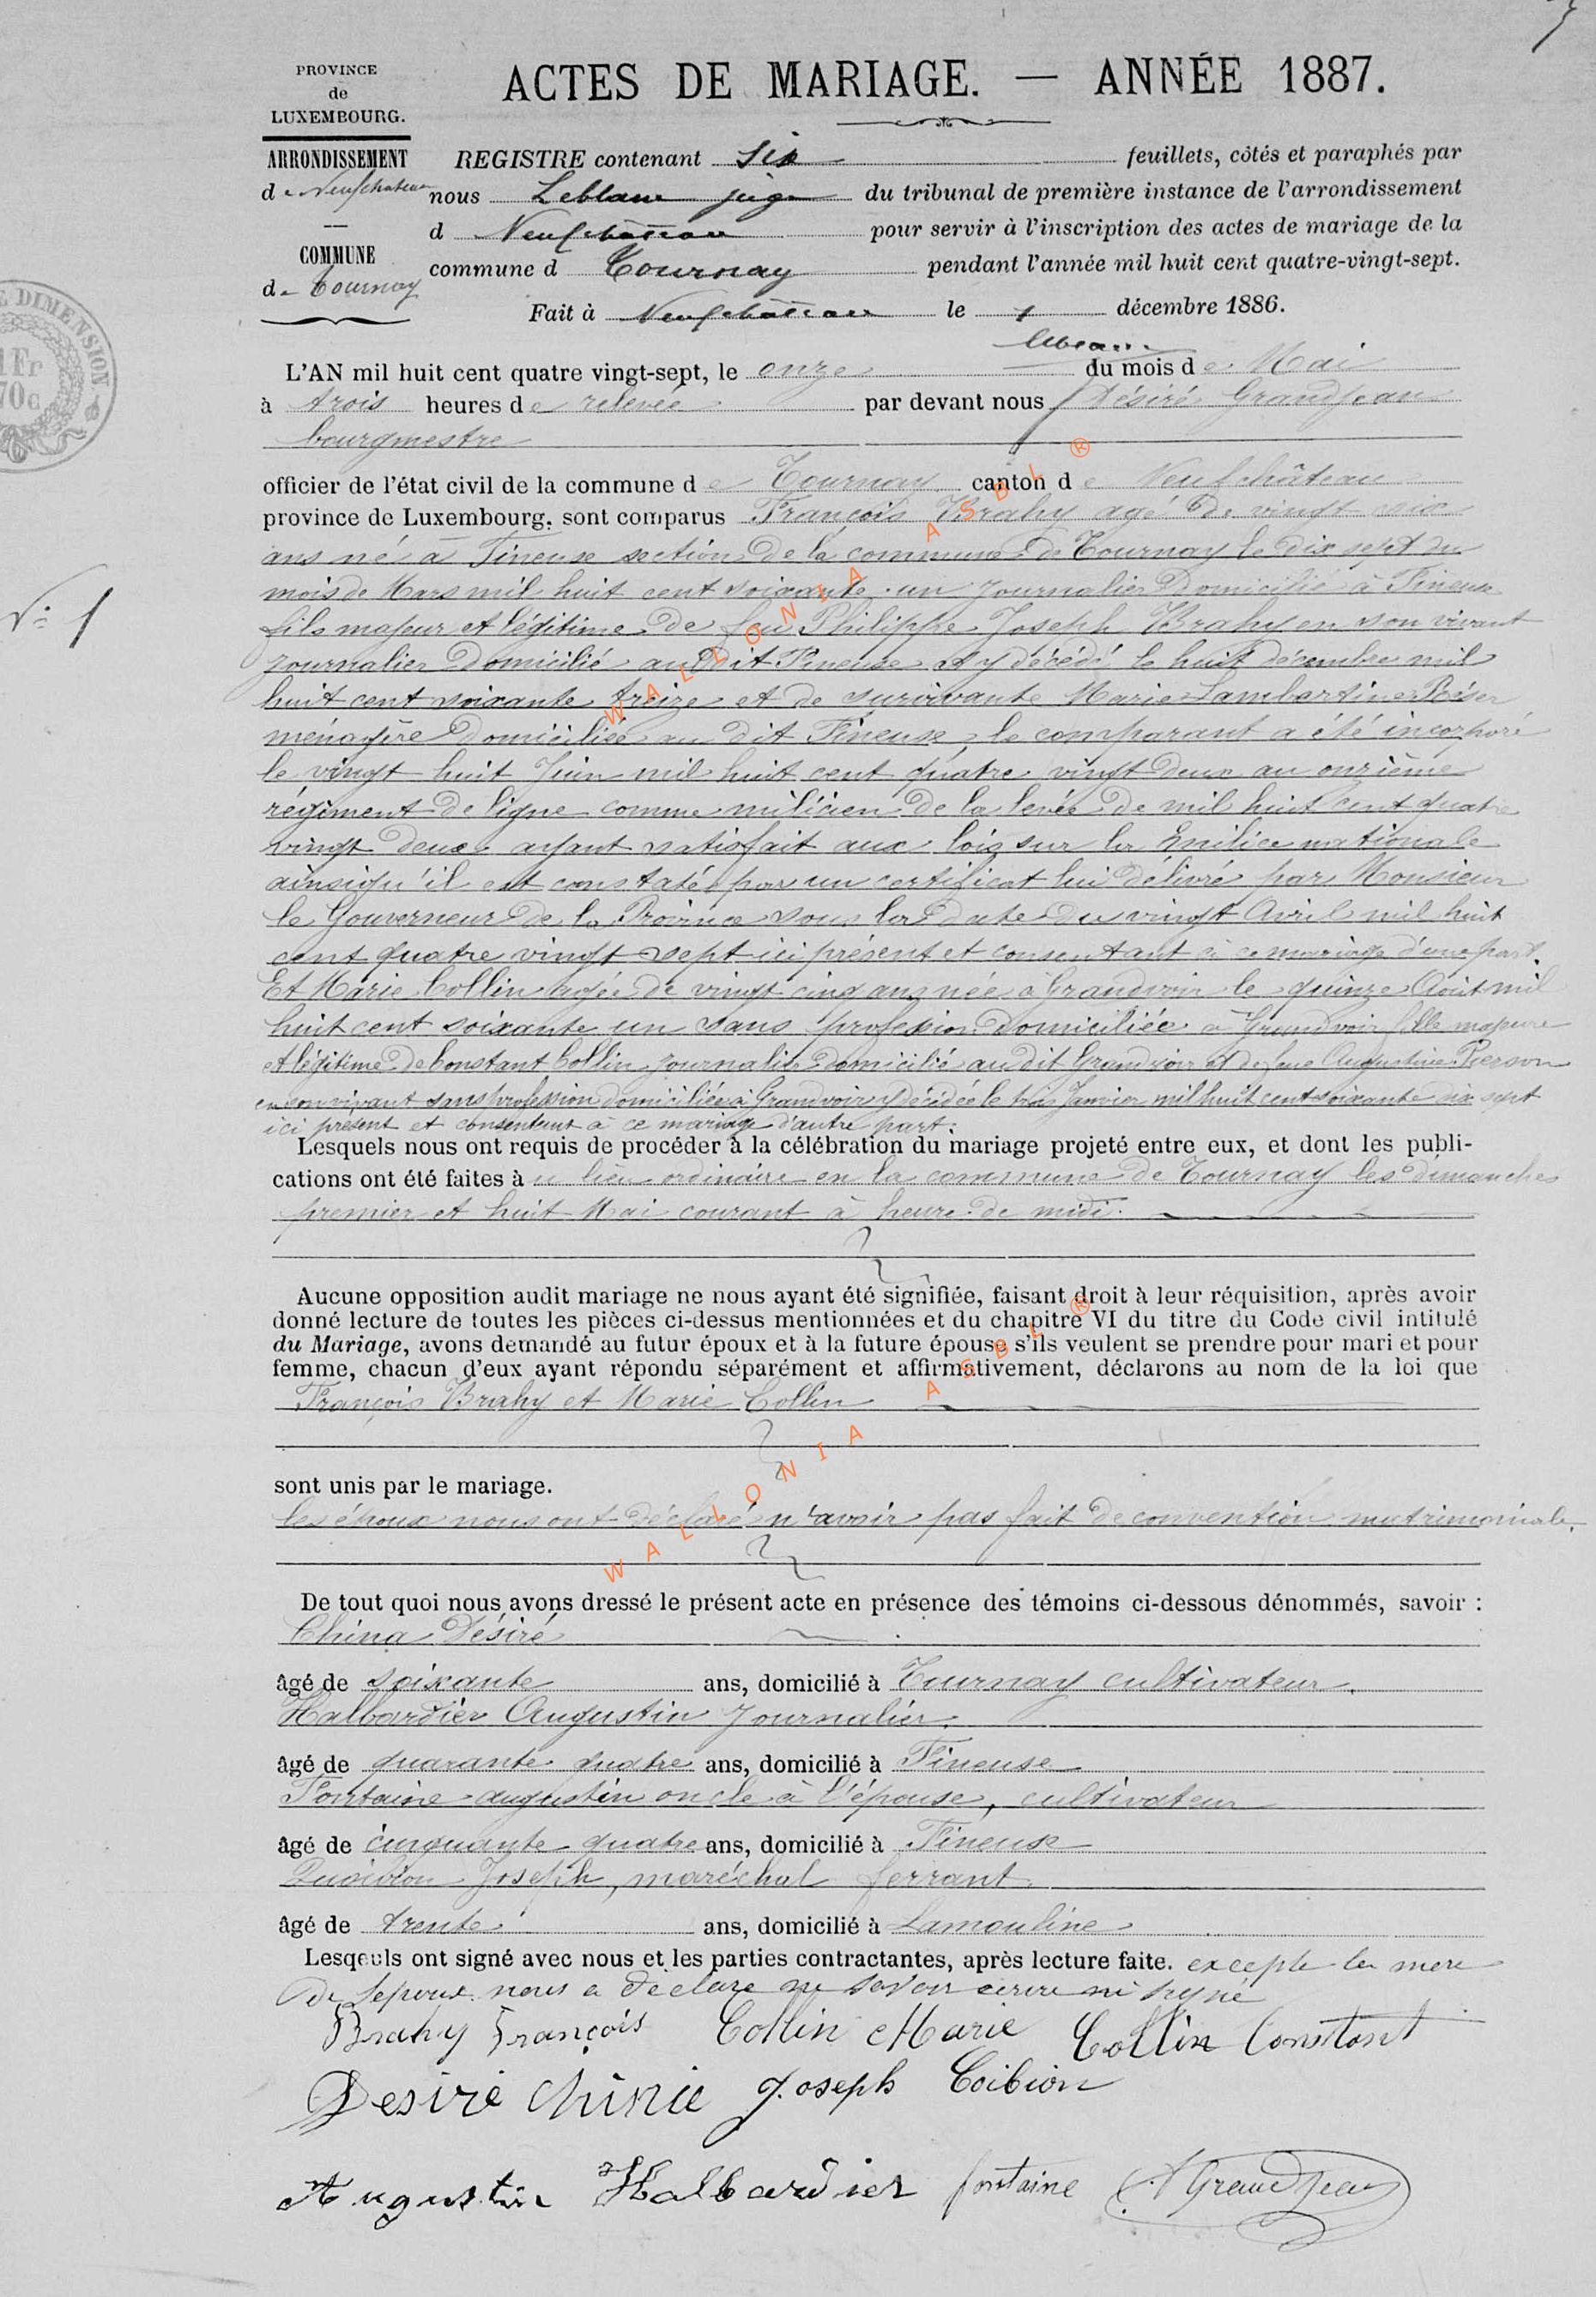 PROVINCE
de
LUXEMBOURG.
ACTES DE MARIAGE. — ANNÉE 1887.
ARRONDISSEMENT
de Neufchateau
COMMUNE
de Tournay
REGISTRE contenant six feuillets, côtés et paraphés par
nous Leblanc juge du tribunal de première instance de l'arrondissement
d Neufchâteau pour servir à l'inscription des actes de mariage de la
commune d Tournay pendant l'année mil huit cent quatre-vingt-sept.
Fait à Neufchâteau le 1 décembre 1886.
DIMENSION
1Fr
70c
L'AN mil huit cent quatre vingt-sept, le onze du mois de Mai
à trois heures de relevée par devant nous Désiré Grandjean
bourgmestre
officier de l'état civil de la commune de Tournay canton de Neufchâteau
province de Luxembourg. sont comparus François Brahy agé de vingt six
ans né à Tineuse section de la commune de Tournay le dix sept du
mois de Mars mil huit cent soixante un journalier domicilié à Tineuse
N° 1
fils majeur et légitime de feu Philippe Joseph Brahy en son vivant
journalier domicilié au dit Tineuse et y décédé le huit décembre mil
huit cent soixante treize et de survivante Marie Lambertine
ménagère domiciliée au dit Tineuse, le comparant a été incorporé
le vingt huit Juin mil huit cent quatre vingt deux au onzième
régiment de ligne comme milicien de la levée de mil huit cent quatre
vingt deux ayant satisfait aux lois sur la milice nationale
ainsiqu'il est constaté par un certificat lui délivré par Monsieur
le Gouverneur de la Province sous la date du vingt Avril mil huit
cent quatre vingt sept ici présent et consentant à ce mariage d'une part.
Et Marie Collin agée de vingt cinq ans née à Grandvoir le quinze Août mil
huit cent soixante un sans profession domiciliée à Grandvoir fille majeure
et légitime de Constant Collin journalier domicilié au dit Grandvoir et de feue Augustine Pierson
en son vivant sans profession domiciliée à Grandvoir y décédée le trois Janvier mil huit cent soixante dix sept
ici présent et consentant à ce mariage d'autre part.
Lesquels nous ont requis de procéder à la célébration du mariage projeté entre eux, et dont les publi-
cations ont été faites au lieu ordinaire en la commune de Tournay les dimanches
premier et huit Mai courant à heure de midi.
Aucune opposition audit mariage ne nous ayant été signifiée, faisant droit à leur réquisition, après avoir
donné lecture de toutes les pièces ci-dessus mentionnées et du chapitre VI du titre du Code civil intitulé
du Mariage, avons demandé au futur époux et à la future épouse s'ils veulent se prendre pour mari et pour
femme, chacun d'eux ayant répondu séparément et affirmativement, déclarons au nom de la loi que
François Brahy et Marie Collin
sont unis par le mariage.
les époux nous ont déclaré n'avoir pas fait de convention matrimoniale.
De tout quoi nous avons dressé le présent acte en présence des témoins ci-dessous dénommés, savoir :
China Désiré
âgé de soixante ans, domicilié à Tournay cultivateur.
Halbardier Augustin journalier.
âgé de quarante quatre ans, domicilié à Tineuse
Fontaine augustin oncle à l'épouse, cultivateur
âgé de cinquante quatre ans, domicilié à Tineuse
Joseph, maréchal ferrant
âgé de trente ans, domicilié à Lamouline
Lesqeuls ont signé avec nous et les parties contractantes, après lecture faite. excepte la mere
de l'epoux nous a declare ne savoir ecrire ni signé
Brahy François Collin Marie Collin Constant
Desiré Joseph Coibion
Augustin Halbardier fontaine Grandjean
WALLONIA ASBL ®
WALLONIA ASBL ®